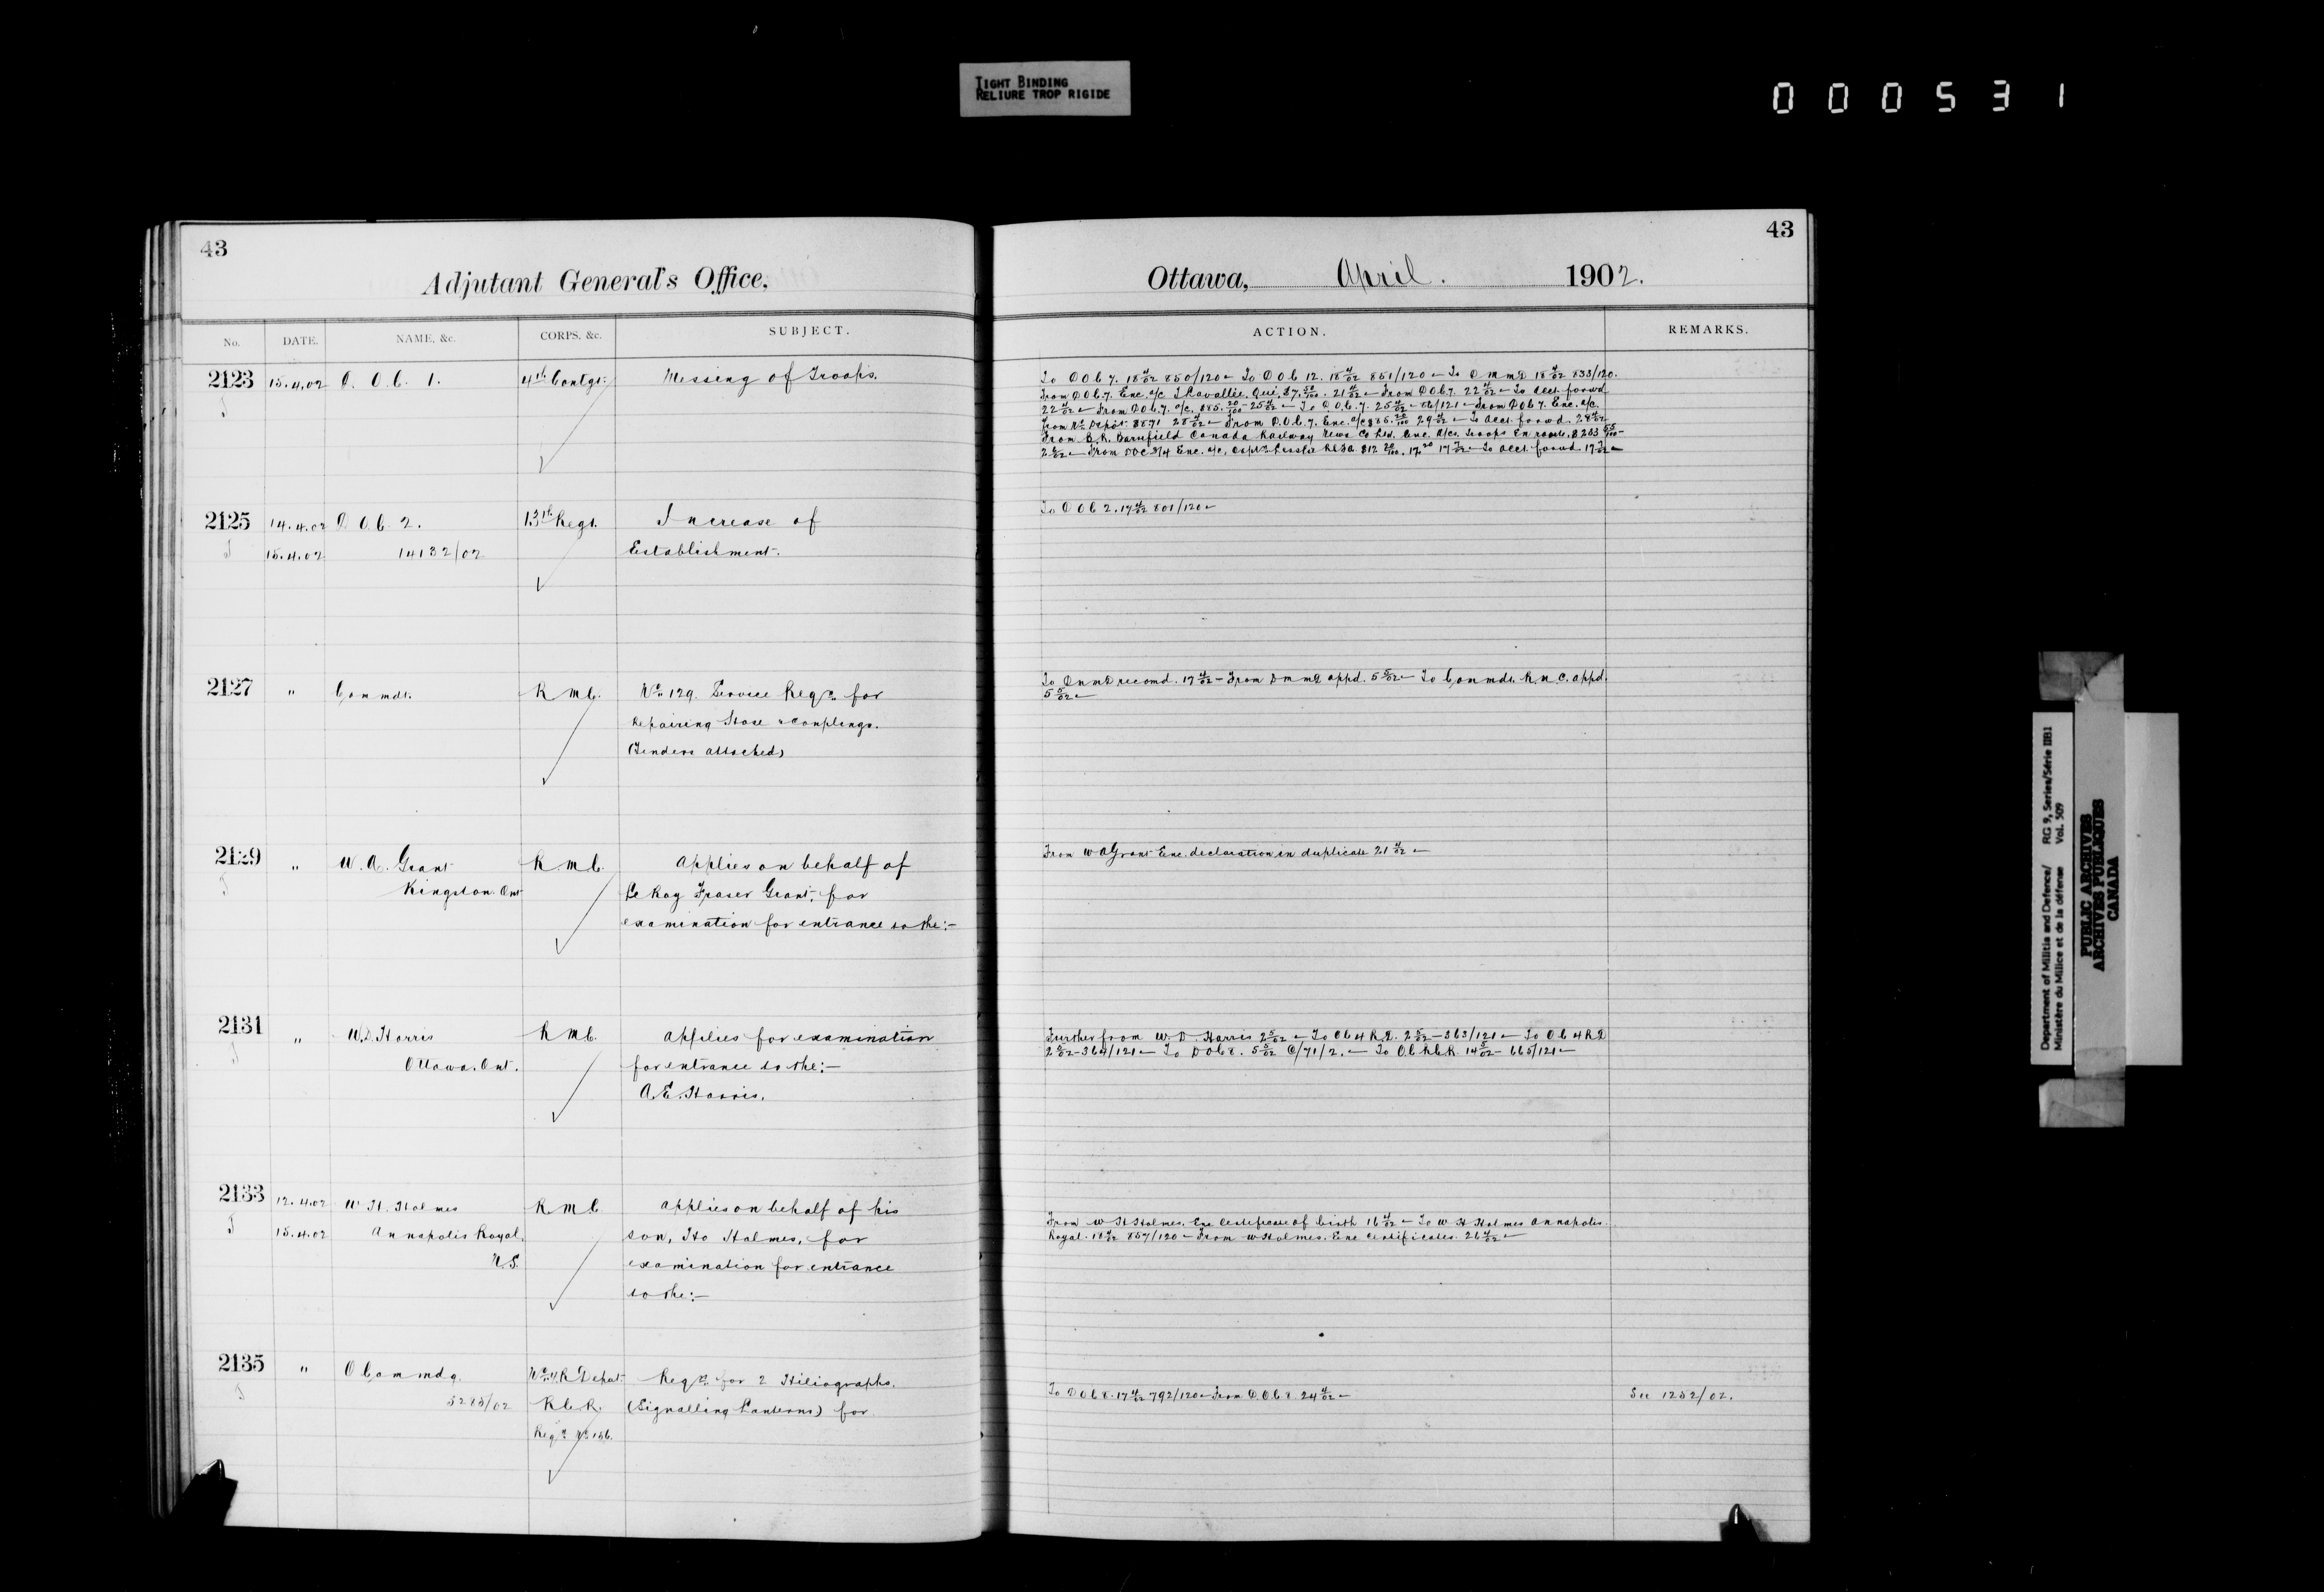 TIGHT BINDING
RELIURE TROP RIGIDE
000531
43
Adjutant General's Office,
No. DATE. NAME, &c. CORPS, &c. SUBJECT.
2123 15.4.02 D. O. C. 1. 4th Contgt. Messing of Troops.
2125 14.4.02 D. O. C. 2. 13th Regt. Increase of
15.4.02 14132/02 Establishment.
2127 " Commdt. R.M.C. No. 129. Service Reqn. for
Repairing Hose & Couplings.
(Tenders attached)
2129 " W. A. Grant R.M.C. Applies on behalf of
Kingston. Ont Le Roy Fraser Grant, for
examination for entrance to the:—
2131 " W.D. Harris R.M.C. Applies for examination
Ottawa. Ont. for entrance to the:—
A.E. Harris.
2133 12.4.02 W. H. Holmes R.M.C. Applies on behalf of his
15.4.02 Annapolis Royal, son, Holmes, for
N.S. examination for entrance
to the:—
2135 " O Commdg. Depot. Reqn. for 2 Hiliographs.
5283/02 R.C.R. (Signalling Lanterns) for
Reqn. No. 156.
43
Ottawa, April. 1902.
ACTION. REMARKS.
To D O C 7. 18 4/02 850/120 — To D O C 12. 18 4/02 851/120 — To 18 4/02 833/120.
From D O C 7. Enc. a/c Lavallie, Que, $7. 50/100. 21 4/02 — From D O C 7. 22 4/02 — To Acct. forwd
22 4/02 — From D O C 7. a/c. $85. 20/100 — 25 4/02 — To D O C 7. 25 4/02 — 86/121 — From D O C 7. Enc. a/c.
28 4/02 — From D.O.C. 7. Enc. a/c $85. 20/100 29 4/02 — To Acct. forwd.
From Barnfield Canada Railway News Co Ltd. Enc. a/cs. Troops En route. $233 55/100 —
From DOC 3/4 Enc. a/c. — To Acct. forwd.
To D O C 2. 17 4/02 801/120 —
To recomd. 17 4/02 — From appd. 5 5/02 — To Commdt. R.M.C. appd.
5 5/02 —
From W A Grant Enc. declaration in duplicate 21 4/02 —
Further from W. D. Harris 2 5/02 — To OC 4 R.D. 2 5/02 — 363/121 — To O C 4 R D
2 5/02 — 364/121 — To D O C 8. 5 5/02 C/71/2. — To O.C. R.C.R. 14 5/02 — 665/121 —
From W H Holmes. Enc Certificate of birth 16 4/02 — To W H Holmes Annapolis
Royal. 18 4/02 857/120 — From W Holmes. Enc Certificates. 26 4/02 —
To D O C 8. 17 4/02 792/120 — From D.O.C 8. 24 4/02 — See 1252/02.
Department of Militia and Defence/ RG 9, Series/Série IIB1
Ministère du Milice et de la défense Vol. 509
PUBLIC ARCHIVES
ARCHIVES PUBLIQUES
CANADA